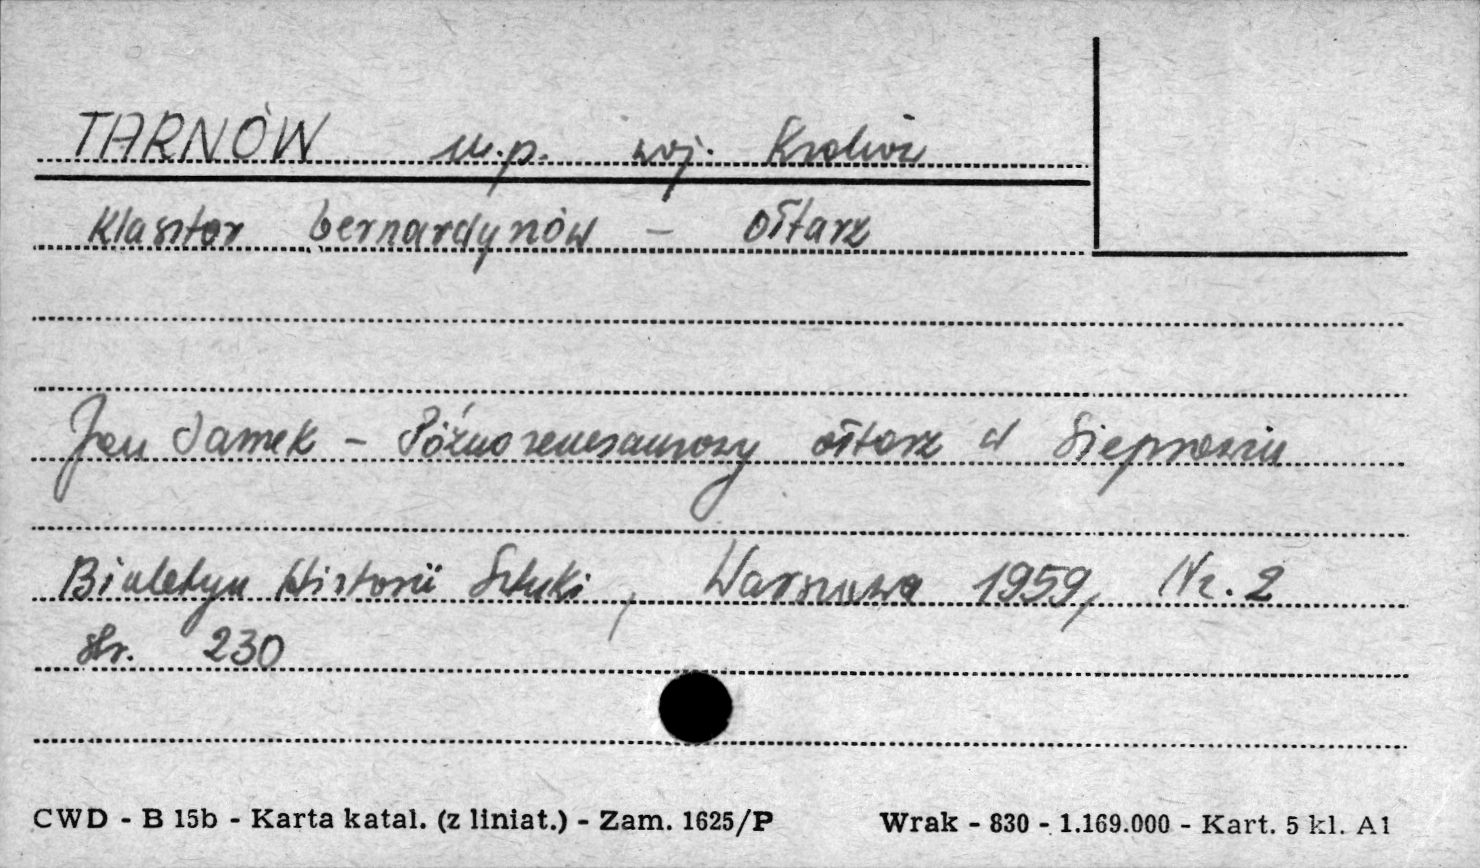 TARNÓW m.p. woj. Kraków
Klasztor bernardynów - ołtarz
Jan Samek - Późnorenesansowy ołtarz w Sieprawiu
Biuletyn Historii Sztuki, Warszawa 1959, Nr. 2
str. 230
CWD - B 15b - Karta katal. (z liniat.) - Zam. 1625/P Wrak - 830 - 1.169.000 - Kart. 5 kl. A1